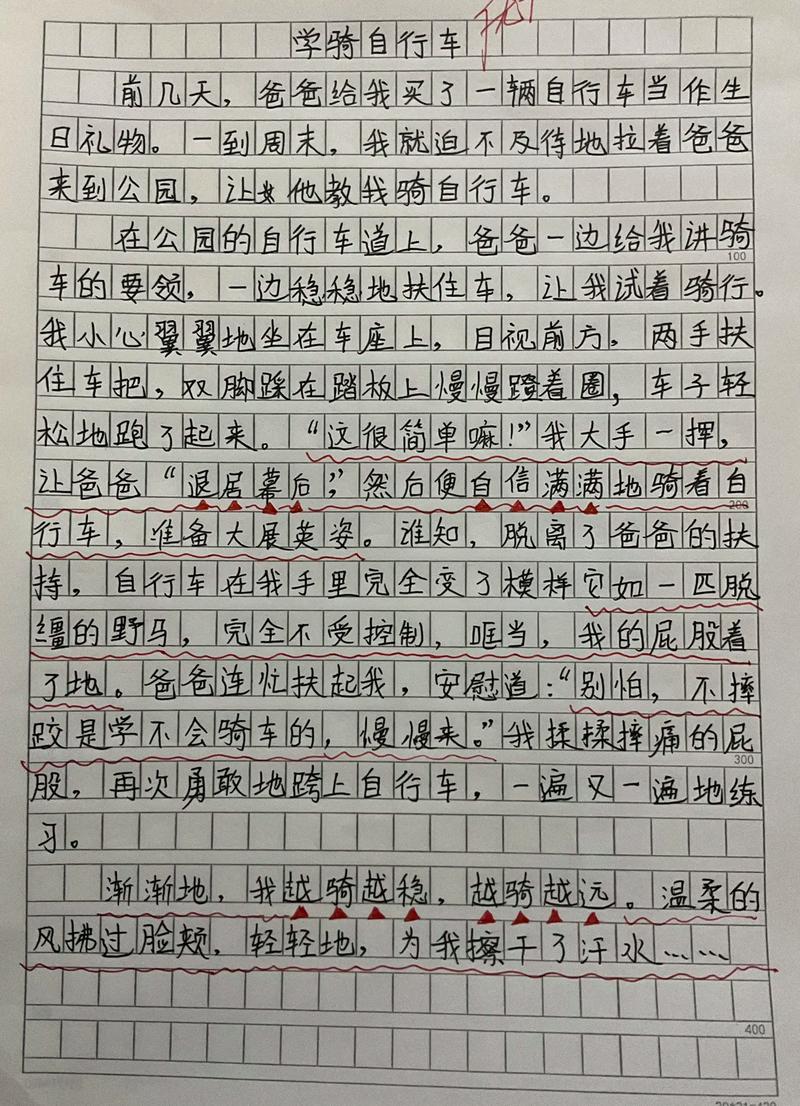 学骑自行车
前几天，爸爸给我买了一辆自行车当作生
日礼物。一到周末，我就迫不及待地拉着爸爸
来到公园，让他教我骑自行车。
在公园的自行车道上，爸爸一边给我讲骑
100
车的要领，一边稳稳地扶住车，让我试着骑行。
我小心翼翼地坐在车座上，目视前方，两手扶
住车把，双脚踩在踏板上慢慢蹬着圈，车子轻
松地跑了起来。“这很简单嘛！”我大手一挥，
让爸爸“退居幕后，”然后便自信满满地骑着自
200
行车，准备大展英姿。谁知，脱离了爸爸的扶
持，自行车在我手里完全变了模样它如一匹脱
缰的野马，完全不受控制，哐当，我的屁股着
了地。爸爸连忙扶起我，安慰道：“别怕，不摔
跤是学不会骑车的，慢慢来。”我揉揉摔痛的屁
300
股，再次勇敢地跨上自行车，一遍又一遍地练
习。
渐渐地，我越骑越稳，越骑越远。温柔的
风拂过脸颊，轻轻地，为我擦干了汗水……
400